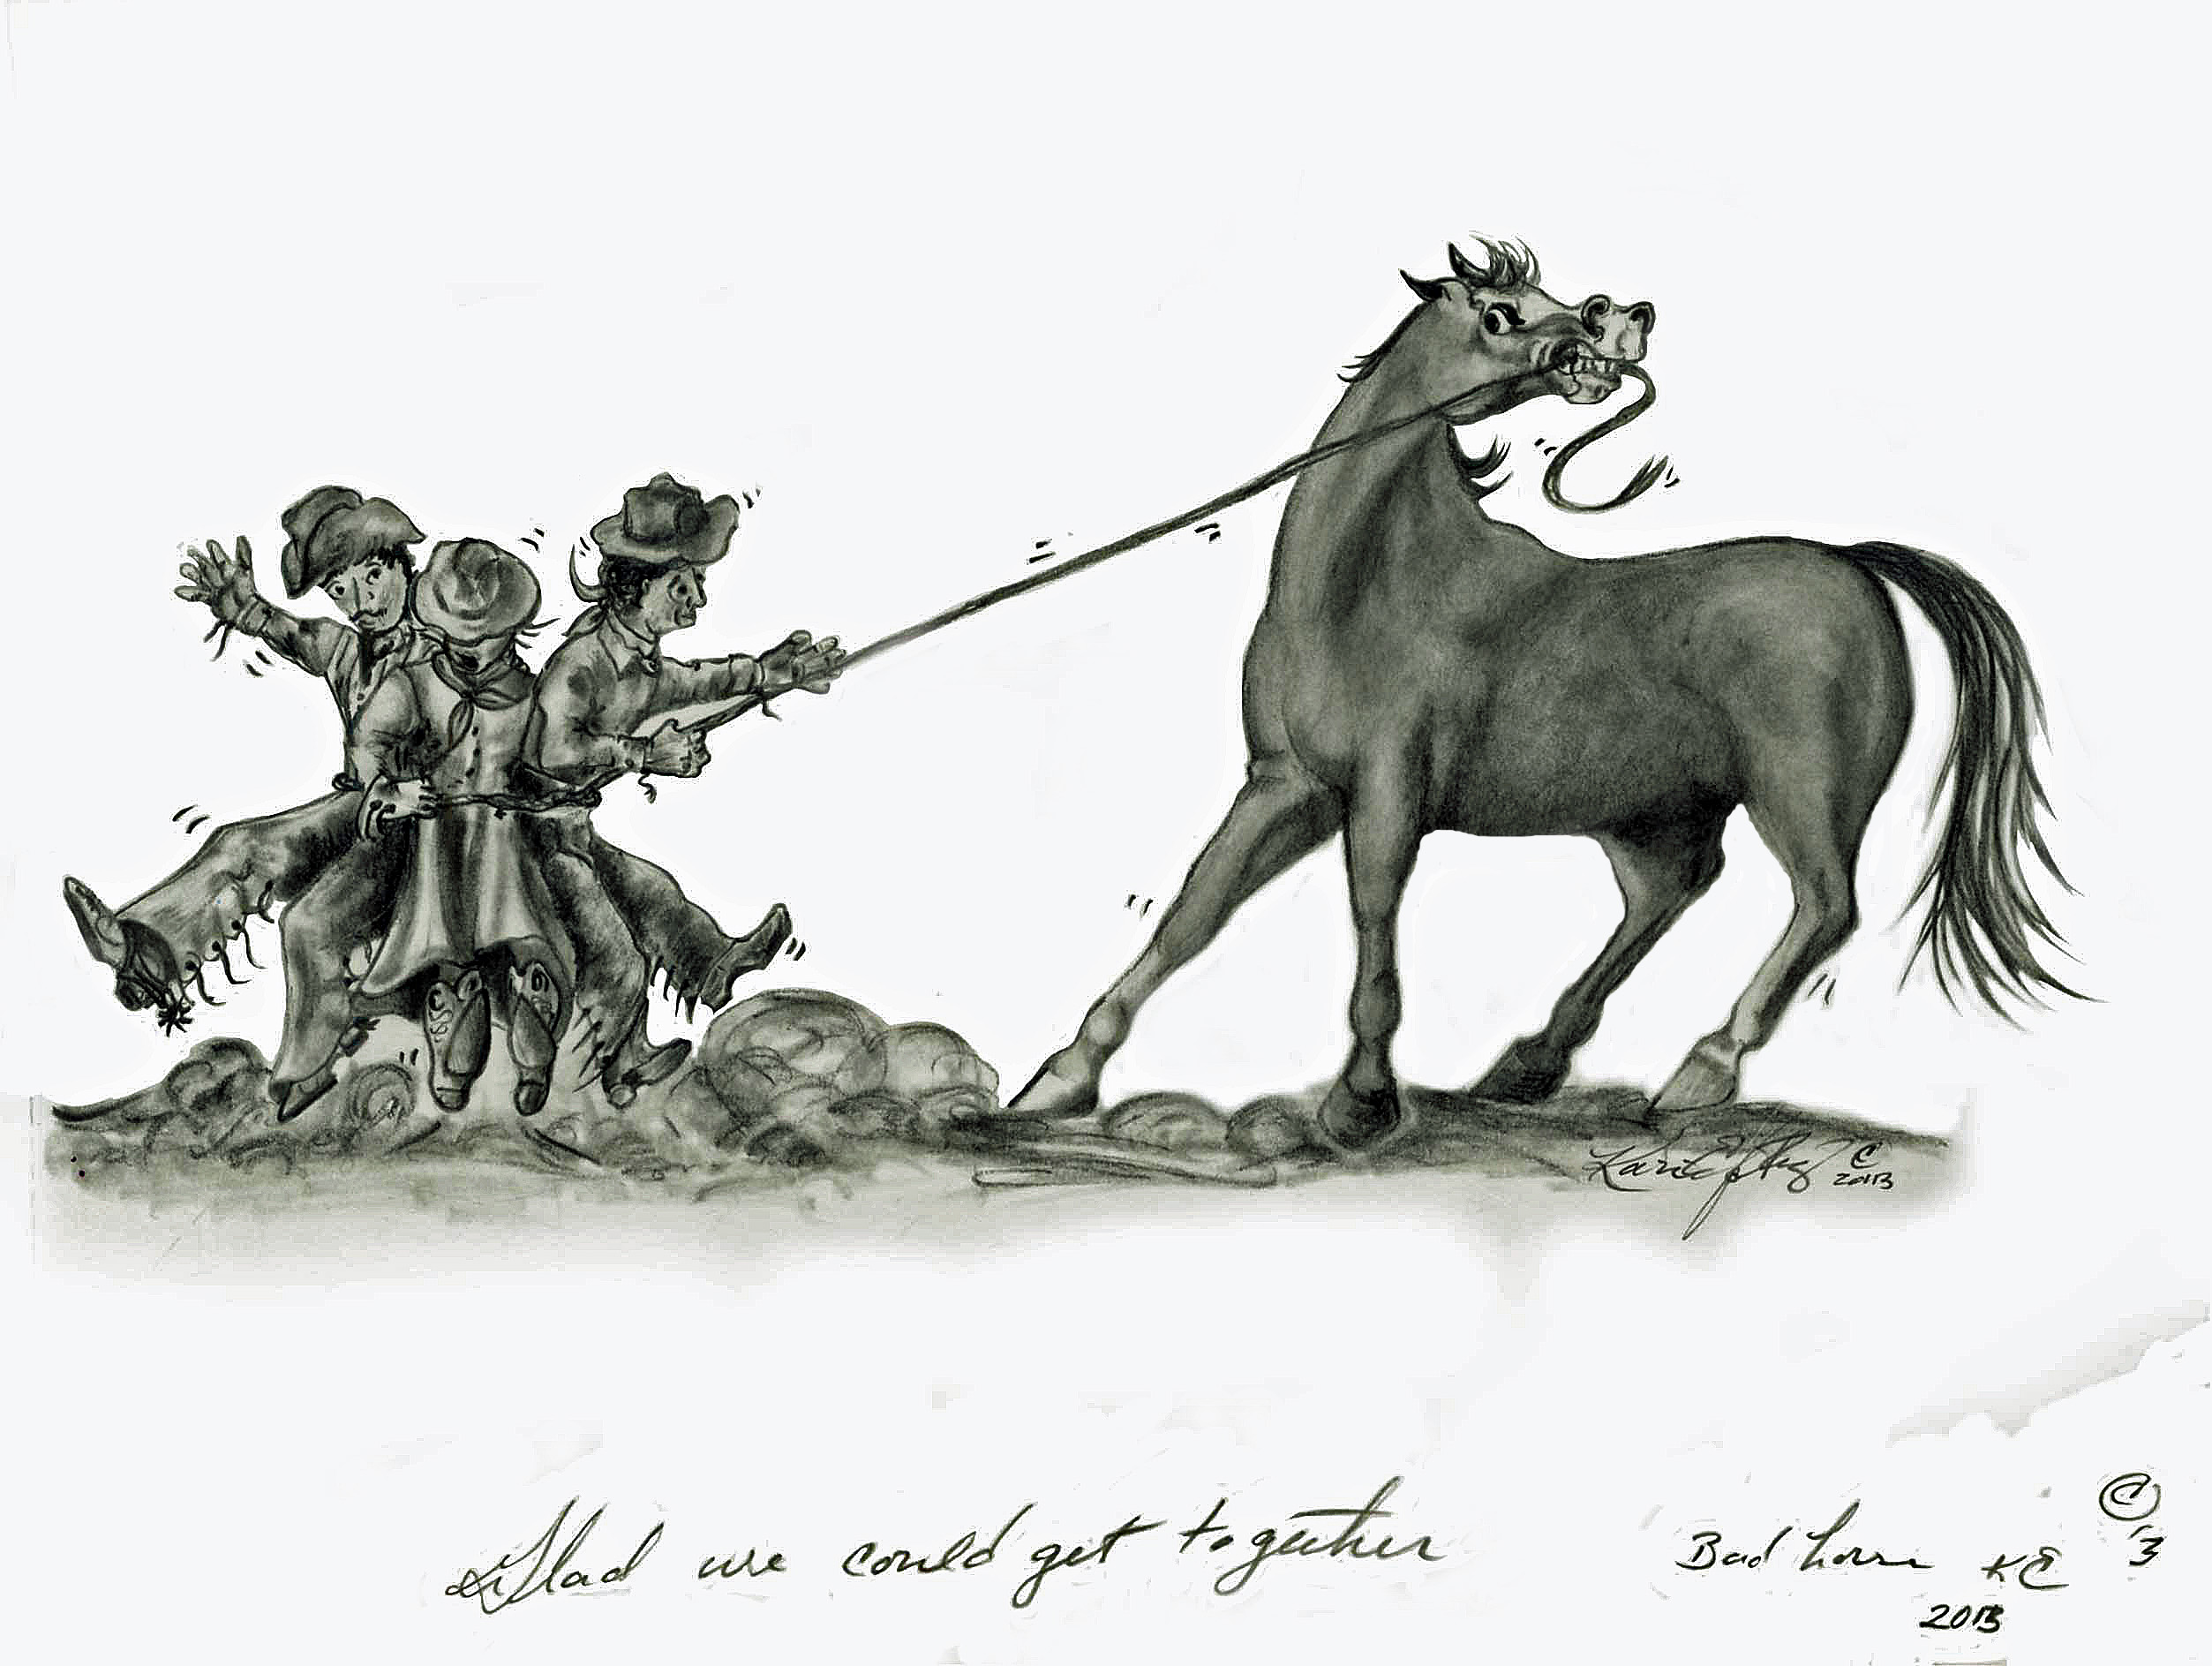 © 2013
Glad we could get together
Bad horse KE © '13
2013